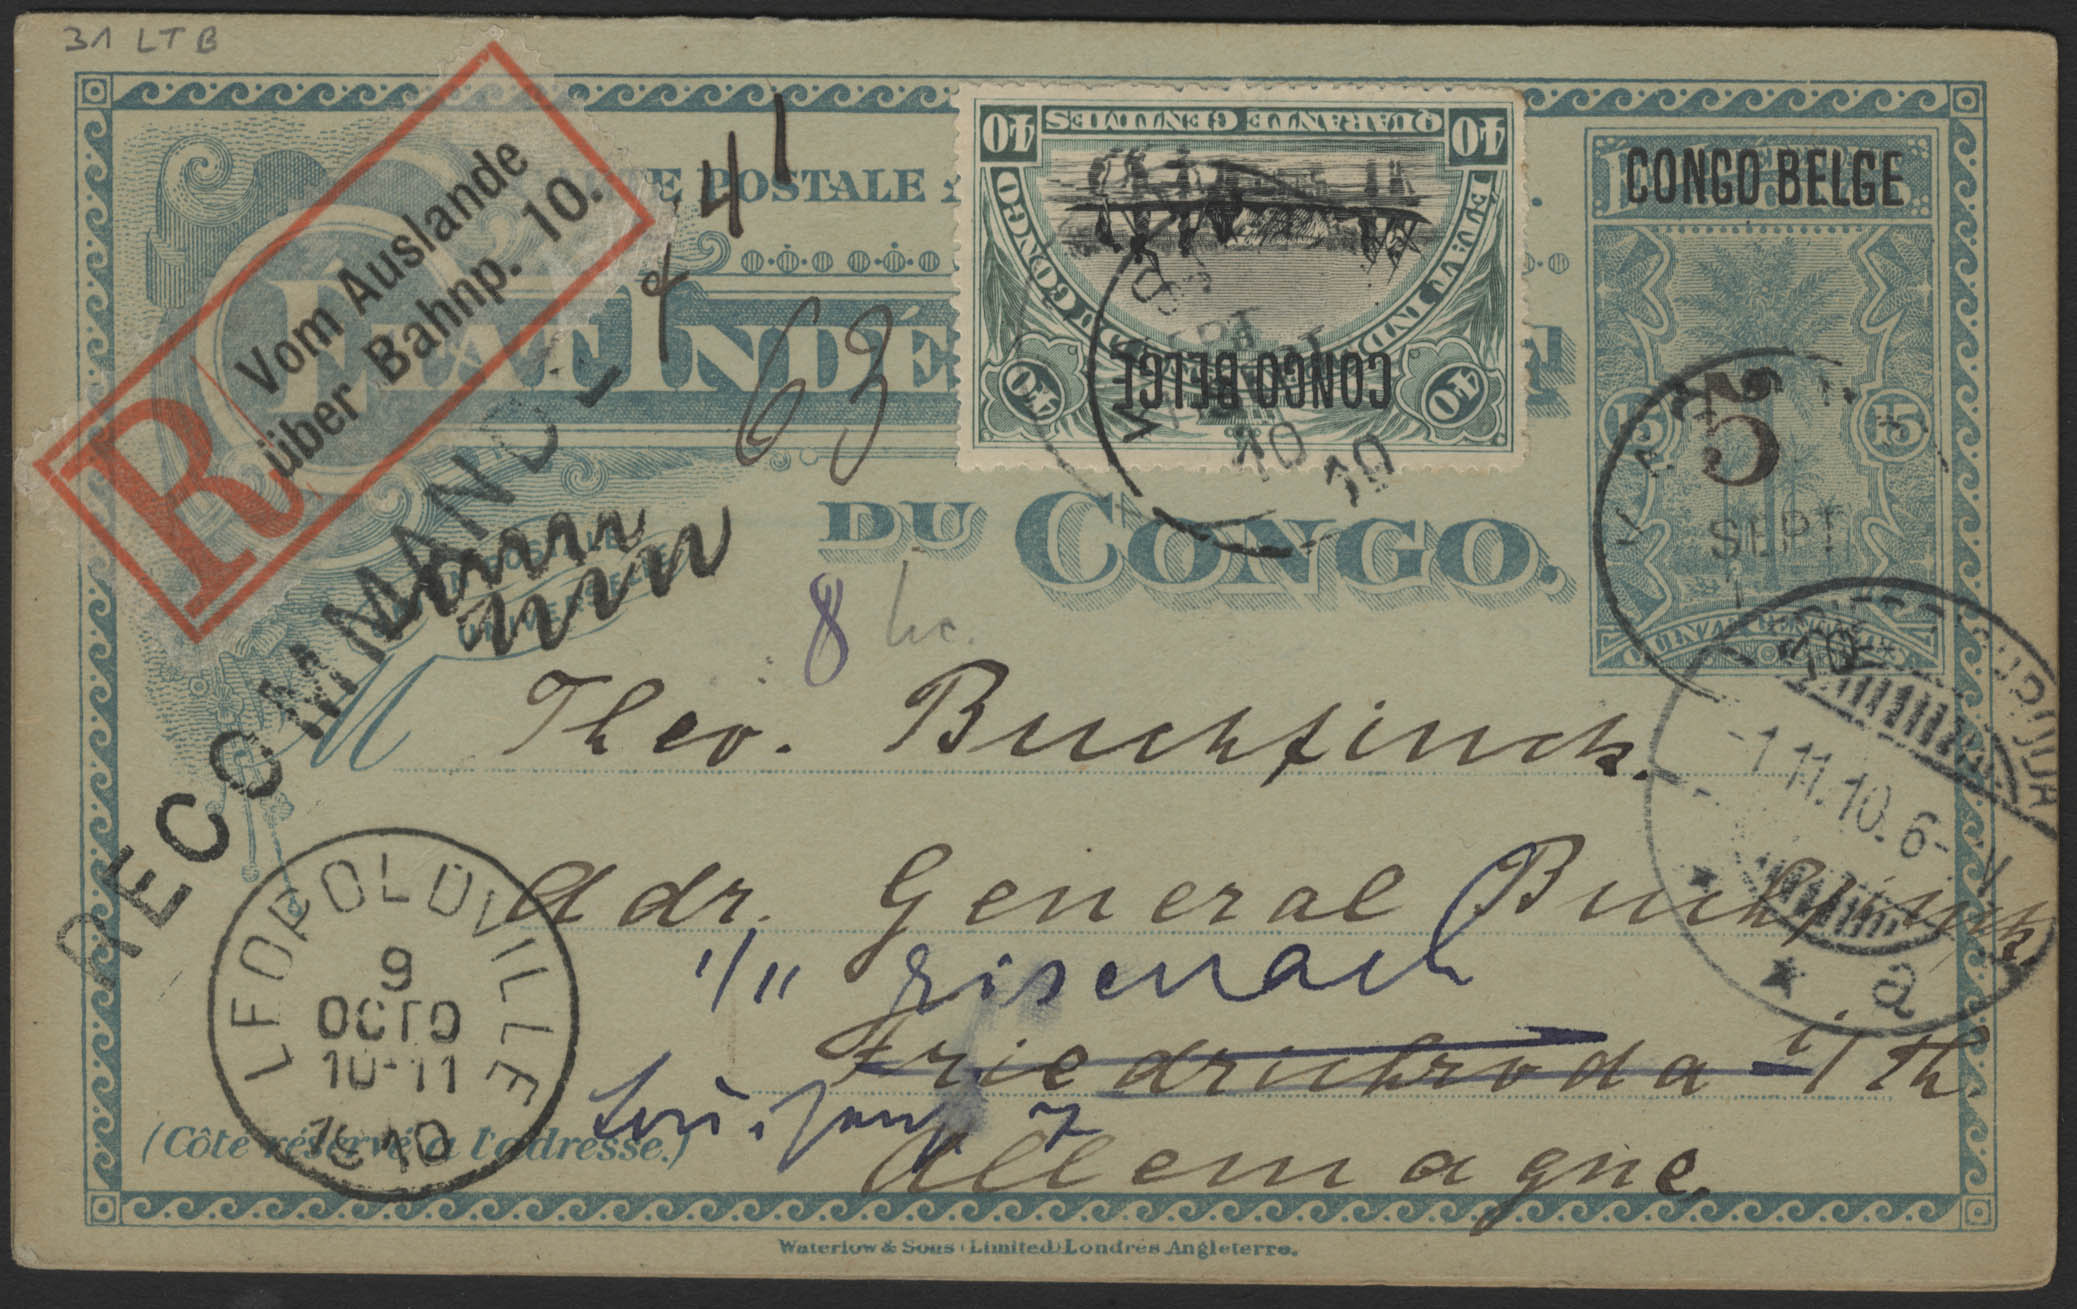 31 LTB
R Vom Auslande
über Bahnp. 10.
41
POSTALE
ÉTAT INDÉ
63
DU CONGO.
40 QUARANTE CENTIMES 40
ÉTAT INDÉPENDANT DU CONGO
40 CONGO BELGE 40
10
10
CONGO BELGE
15 15
5
SEPT
10
RECOMMAND
8
M Theo. Buchfinck.
Adr. General Buchfinck
1/11 Eisenach
Friedrichroda i/Th.
7
Allemagne.
LEOPOLDVILLE
9
OCTO
10-11
1910
-1.11.10. 6-
* a *
(Côté réservé a l'adresse.)
Waterlow & Sons (Limited) Londres Angleterre.